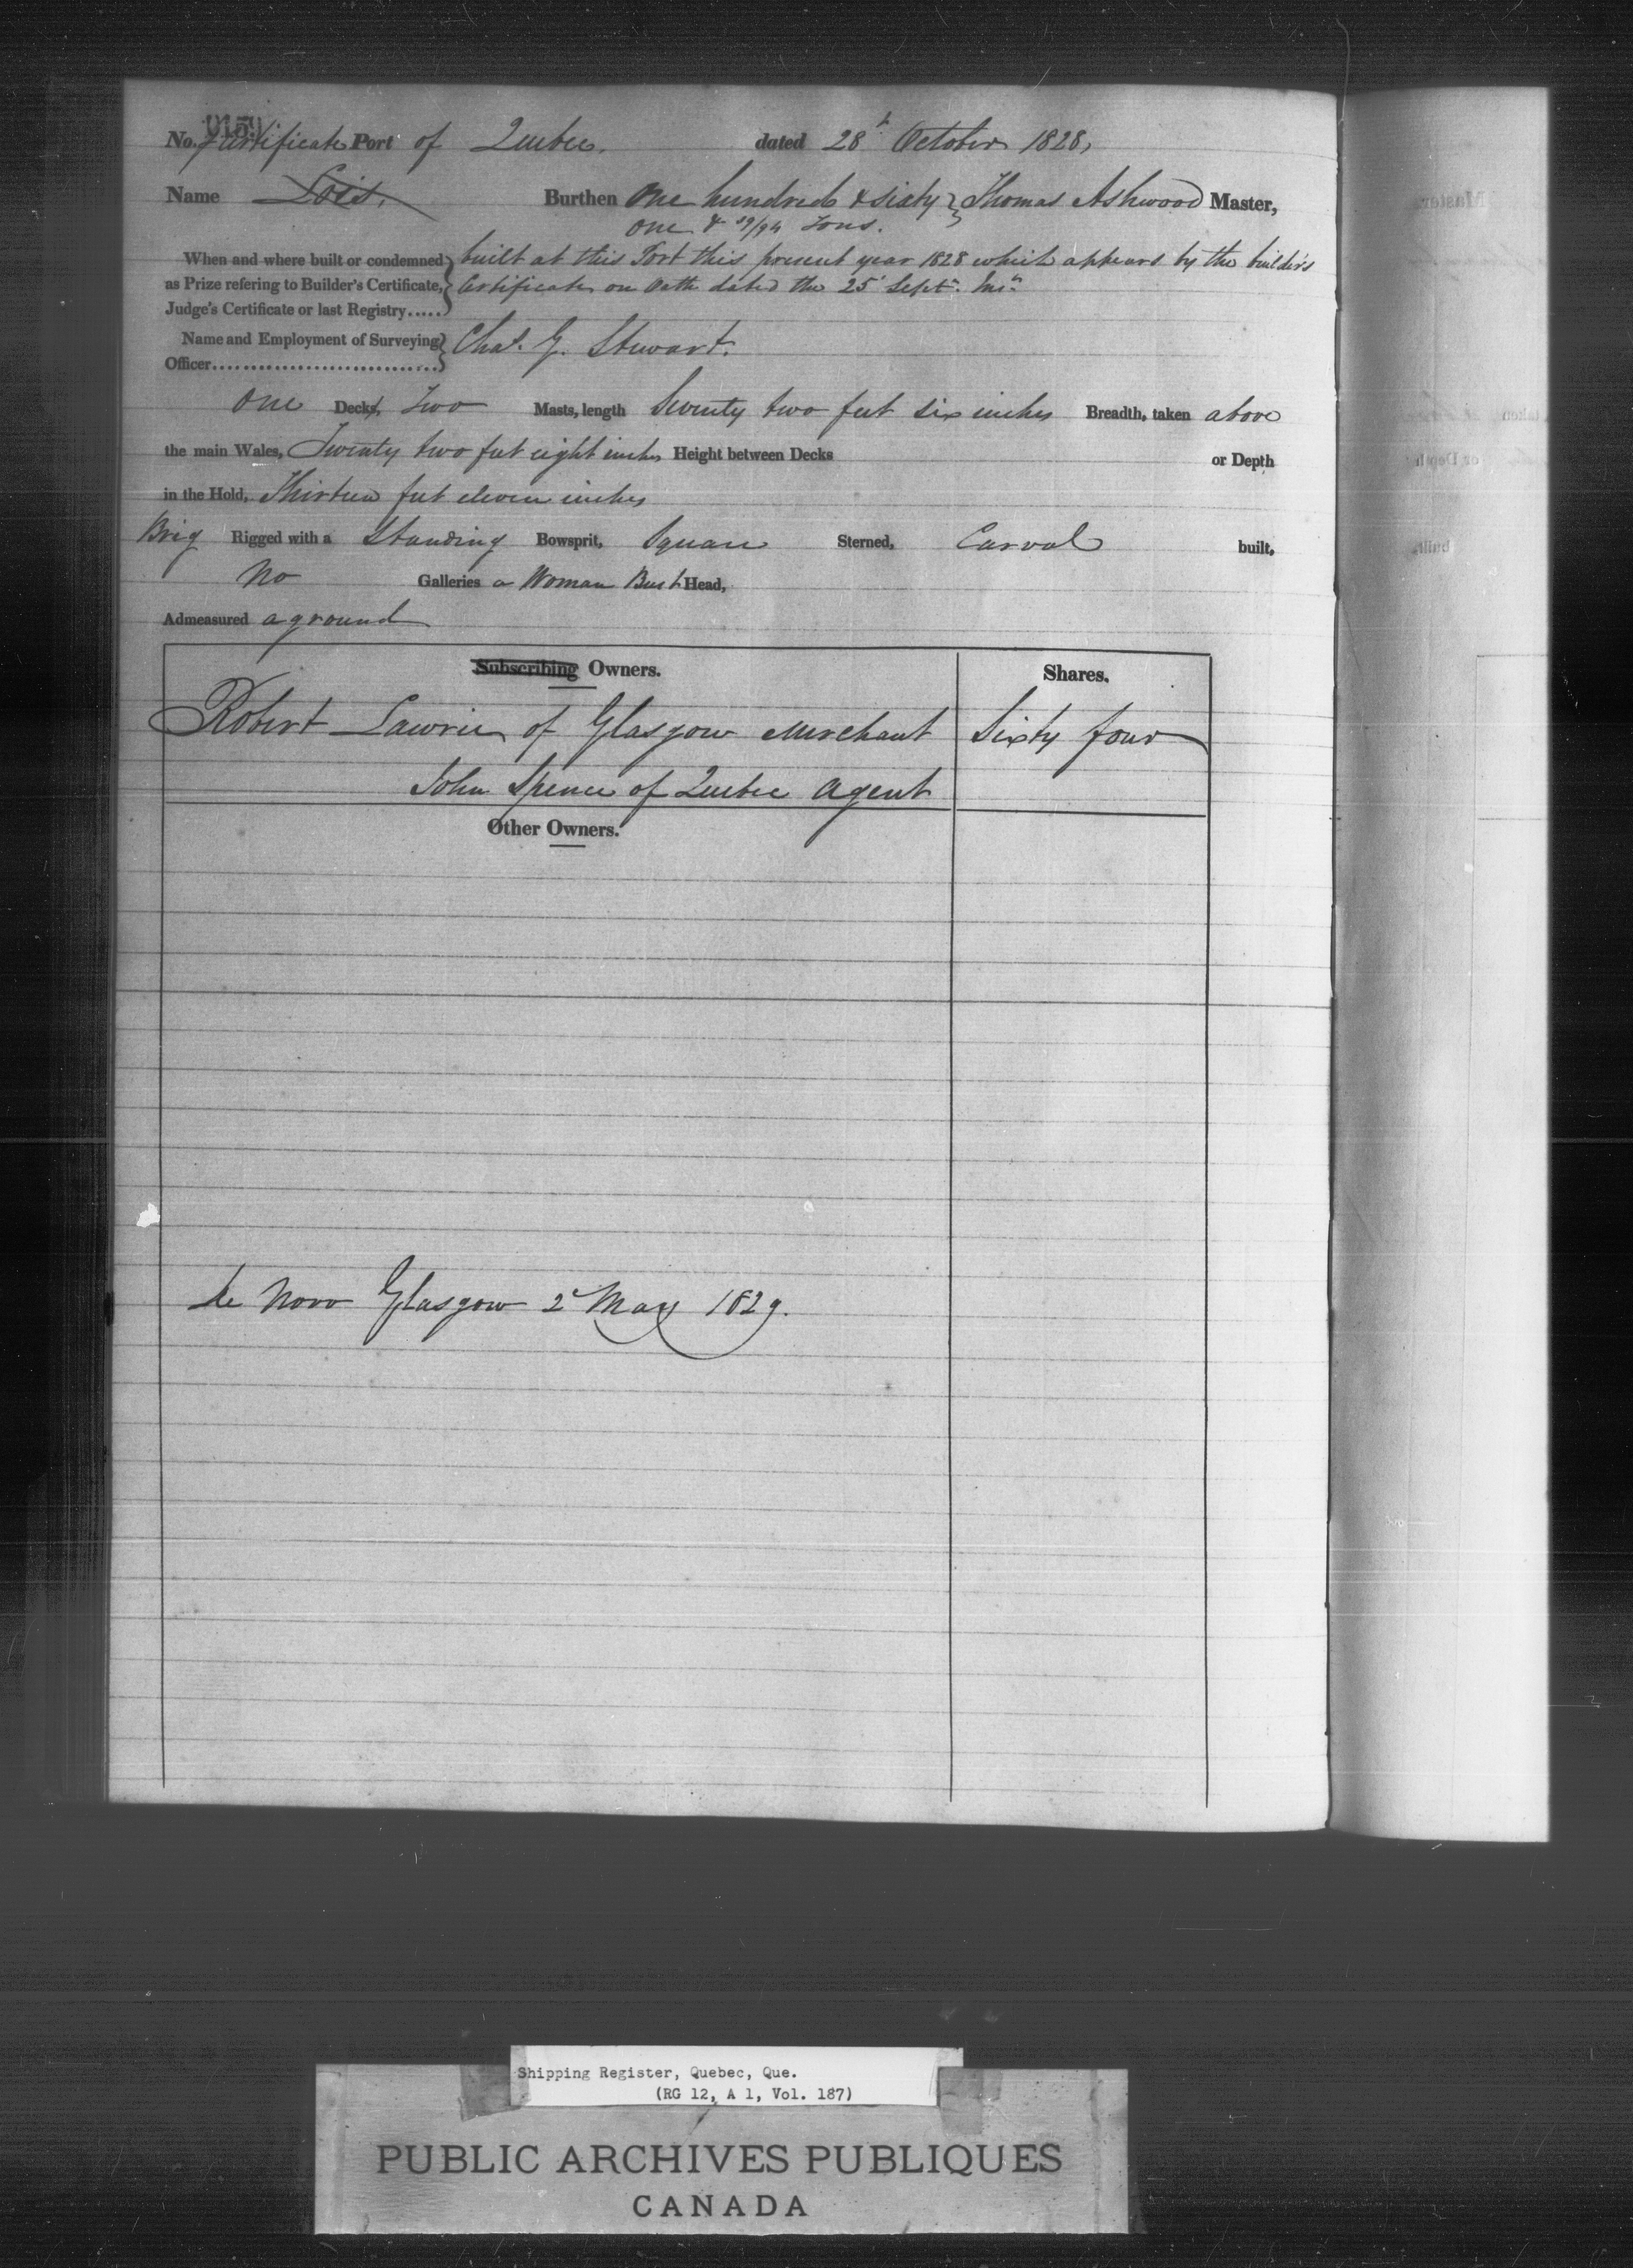 No. Certificate Port of Quebec. dated 28t October 1828,
Name Lois. Burthen One hundred & sixty } Thomas Ashwood Master,
One & 59/94 Tons.
When and where built or condemned } built at this Port this present year 1828 which appears by the builder's
as Prize refering to Builder's Certificate, } Certificate on Oath dated the 25 Sept.
Judge's Certificate or last Registry.....
Name and Employment of Surveying } Chas. G. Stewart.
Officer
One Decks, Two Masts, length Seventy two feet six inches Breadth, taken above
the main Wales, Twenty two feet eight inches Height between Decks or Depth
in the Hold, Thirteen feet eleven inches
Brig Rigged with a Standing Bowsprit, Square Sterned, Carvel built,
No Galleries a Woman Bust Head,
Admeasured aground
Subscribing Owners. Shares.
Robert Lawrie of Glasgow Merchant Sixty four
John Spence of Quebec Agent
Other Owners.
de Novo Glasgow 2d May 1829.
Shipping Register, Quebec, Que.
(RG 12, A 1, Vol. 187)
PUBLIC ARCHIVES PUBLIQUES
CANADA